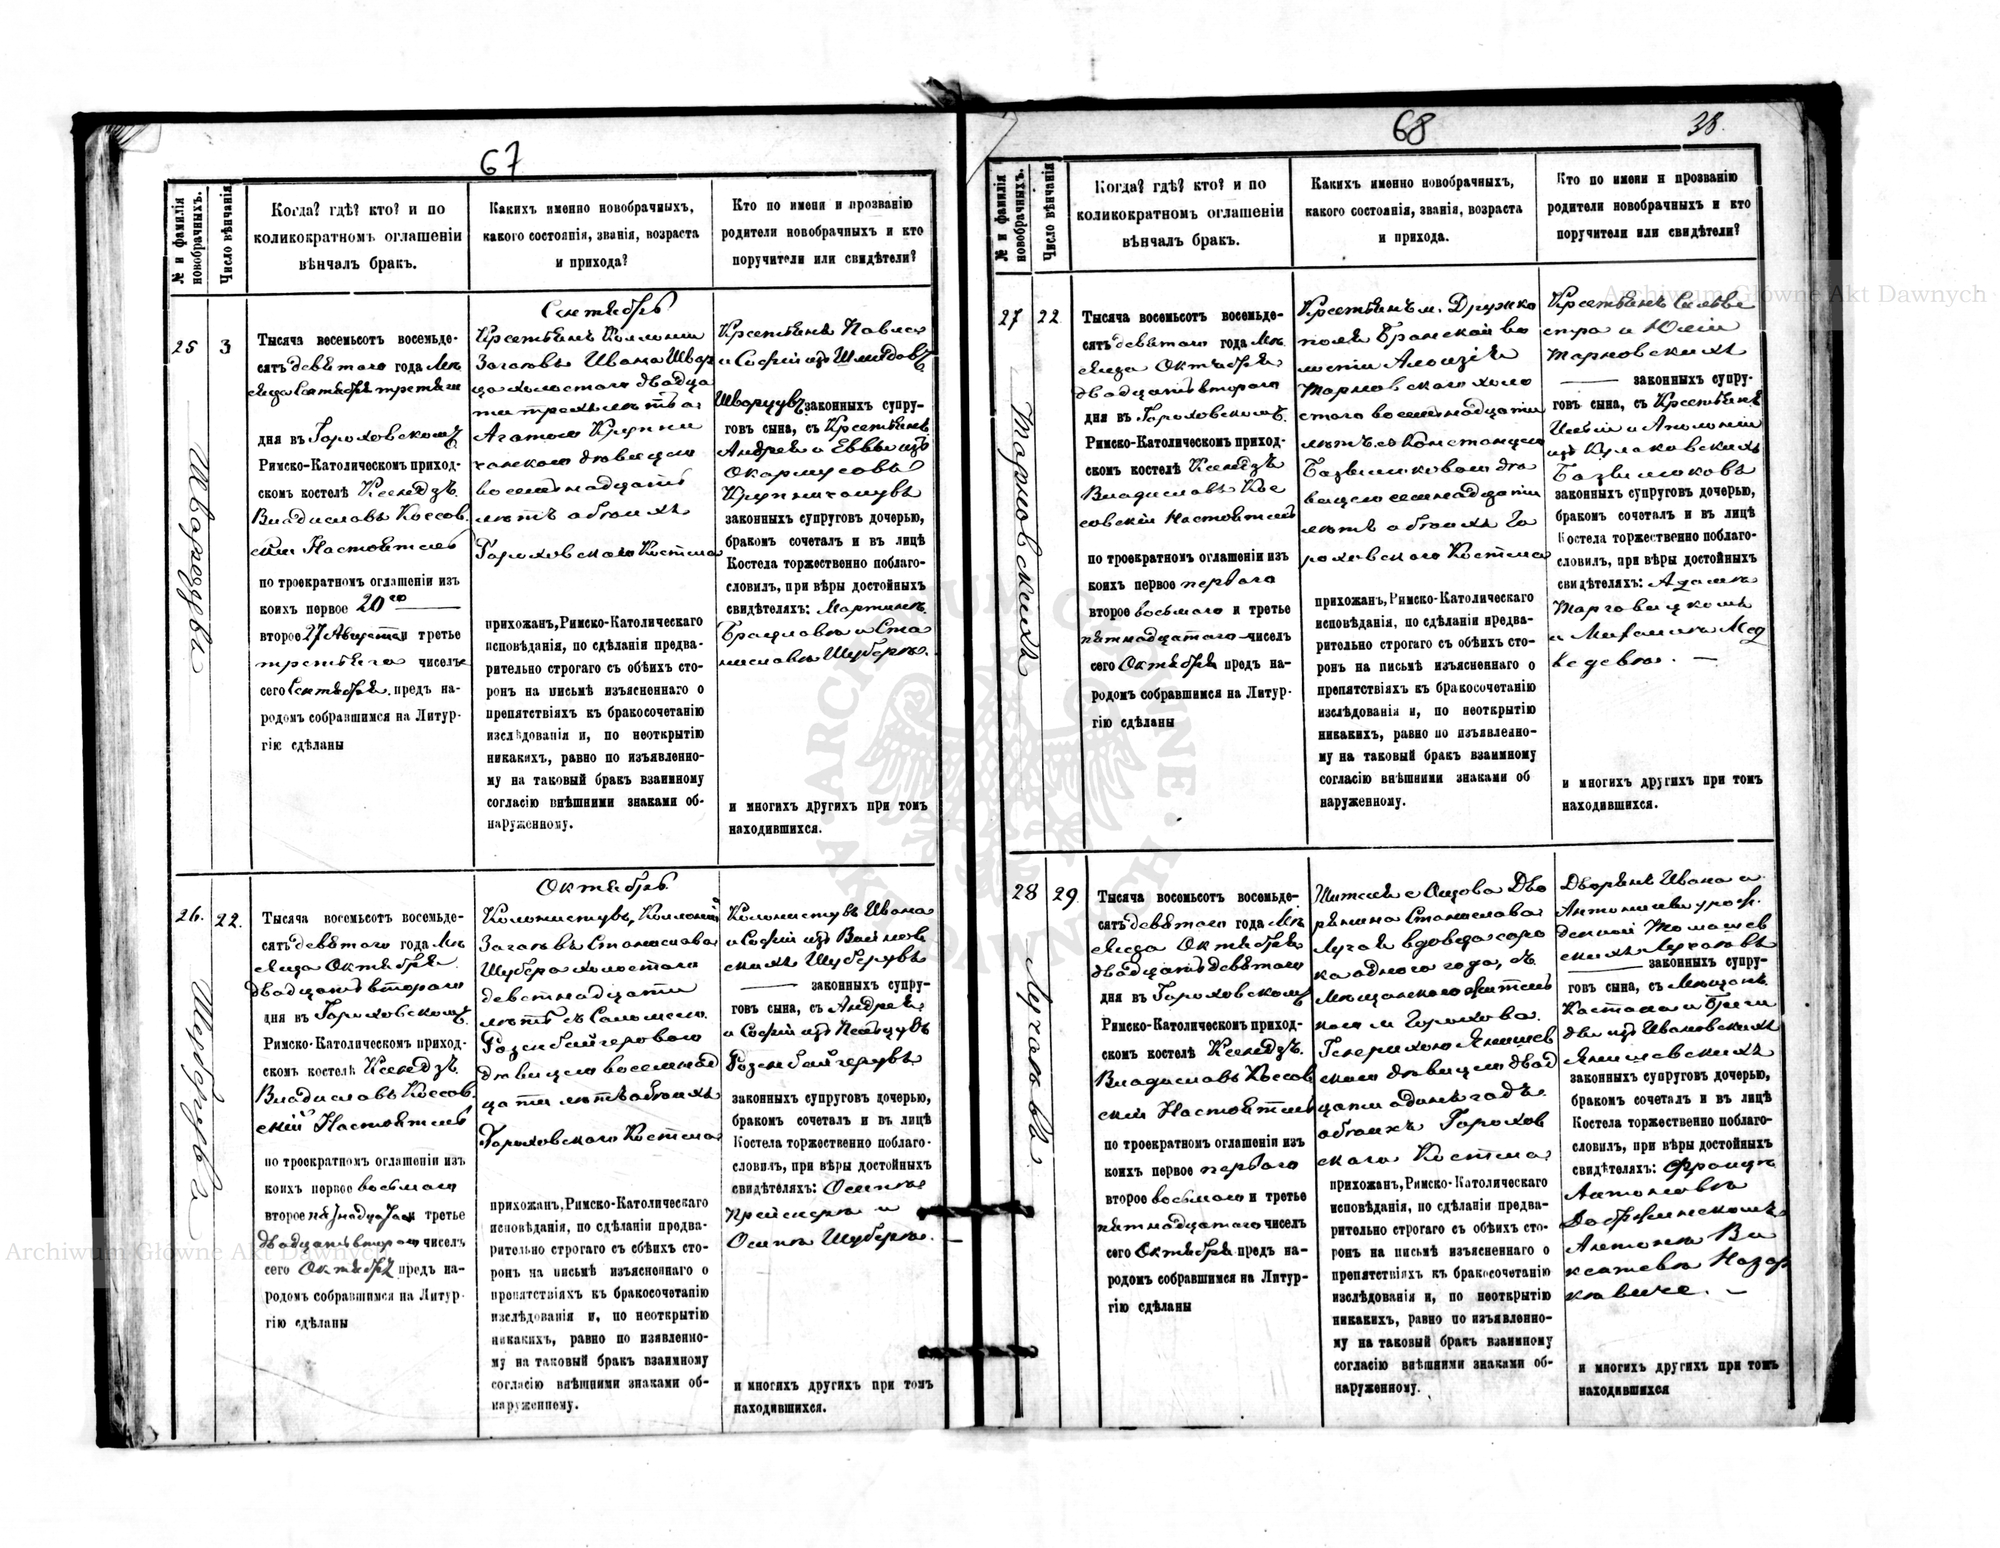 67
№ и фамилія новобрачныхъ.
Число вѣнчанія
Когда? гдѣ? кто? и по
коликократномъ оглашеніи
вѣнчалъ бракъ.
Какихъ именно новобрачныхъ,
какого состоянія, званія, возраста
и прихода?
Кто по имени и прозванію
родители новобрачныхъ и кто
поручители или свидѣтели?
25
3
Шварцувъ
Тысяча восемьсот восемьде-
сятъ девятого года Мѣ
сяца Сентября третьяго
дня въ Гороховскомъ
Римско-Католическомъ приход-
скомъ костелѣ Ксендзъ
Владиславъ Коссов
скій Настоятель
по троекратномъ оглашеніи изъ
коихъ первое 20го
второе 27 Августа и третье
третьяго чиселъ
сего Сентября предъ на-
родомъ собравшимся на Литур-
гію сдѣланы
Сентябрь
Крестьянъ Колоніи
Загаевъ Ивана Швар
ца холостого двадца
ти трехъ лѣтъ съ
Агатою Крупни
чанскою дѣвицею
восемнадцать
лѣтъ обоихъ
Гороховского Костела
прихожан, Римско-Католическаго
исповѣданія, по сдѣланіи предва-
рительно строгаго съ обѣихъ сто-
ронъ на письмѣ изъясненнаго о
препятствіяхъ къ бракосочетанію
изслѣдованія и, по неоткрытію
никакихъ, равно по изъявленно-
му на таковый бракъ взаимному
согласію внѣшними знаками об-
наруженному.
Крестьянъ Павла
и Софіи изъ Шмидтов
Шварцувъ законныхъ супру-
говъ сына, съ Крестьянъ
Андрея и Еввы изъ
законныхъ супругов дочерью,
бракомъ сочеталъ и въ лицѣ
Костела торжественно поблаго-
словилъ, при вѣры достойныхъ
свидѣтеляхъ: Мартинѣ
и Ста
ниславѣ Шуберѣ.
и многихъ другихъ при томъ
находившихся.
26.
22.
Шуберувъ
Тысяча восемьсот восемьде-
сятъ девятого года Мѣ
сяца Октября
двадцать второго
дня въ Гороховскомъ
Римско-Католическомъ приход-
скомъ костелѣ Ксендзъ
Владиславъ Коссов
скій Настоятель
по троекратномъ оглашеніи изъ
коихъ первое восьмого
второе пятнадцатого и третье
двадцать второго чиселъ
сего Октября предъ на-
родомъ собравшимся на Литур-
гію сдѣланы
Октябрь
Колонистувъ, Колоній
Загаевъ Станислава
Шубера холостого
девятнадцати
лѣтъ съ Саломеею
Розенбейгеровою
дѣвицею восемнад
цати лѣтъ обоихъ
Гороховского Костела
прихожан, Римско-Католическаго
исповѣданія, по сдѣланіи предва-
рительно строгаго съ обѣихъ сто-
ронъ на письмѣ изъясненнаго о
препятствіяхъ къ бракосочетанію
изслѣдованія и, по неоткрытію
никакихъ, равно по изявленно-
му на таковый бракъ взаимному
согласію внѣшними знаками об-
наруженному.
Колонистувъ Ивана
и Софіи изъ
скихъ Шуберувъ
законныхъ супру-
говъ сына, съ Андрея
и Софіи изъ
Розенбейгерувъ
законныхъ супругов дочерью,
бракомъ сочеталъ и въ лицѣ
Костела торжественно поблаго-
словилъ, при вѣры достойныхъ
свидѣтеляхъ: Осипѣ
и
Осипѣ Шуберѣ.
и многихъ другихъ при томъ
находившихся.
68
38.
№ и фамилія новобрачныхъ.
Число вѣнчанія
Когда? гдѣ? кто? и по
коликократномъ оглашеніи
вѣнчалъ бракъ.
Какихъ именно новобрачныхъ,
какого состоянія, званія, возраста
и прихода.
Кто по имени и прозванію
родители новобрачныхъ и кто
поручители или свидѣтели?
27
22
Тарновскихъ
Тысяча восемьсот восемьде-
сятъ девятого года Мѣ
сяца Октября
двадцать второго
дня въ Гороховскомъ
Римско-Католическомъ приход-
скомъ костелѣ Ксендзъ
Владиславъ Кос
совскій Настоятель
по троекратномъ оглашеніи изъ
коихъ первое первого
второе восьмого и третье
пятнадцатого чиселъ
сего Октября предъ на-
родомъ собравшимся на Литур-
гію сдѣланы
Крестьянъ м. Дружко
поля Бранской во
лости Алоизія
Тарновского холо
стого восемнадцати
лѣтъ съ Констанцею
Базвилюковою дѣ
вицею семнадцати
лѣтъ обоихъ Го
роховского Костела
прихожан, Римско-Католическаго
исповѣданія, по сдѣланіи предва-
рительно строгаго съ обѣихъ сто-
ронъ на письмѣ изъясненнаго о
препятствіяхъ къ бракосочетанію
изслѣдованія и, по неоткрытію
никакихъ, равно по изъявленно-
му на таковый бракъ взаимному
согласію внѣшними знаками об
наруженному.
Крестьянъ Сильве
стра и Юліи
Тарновскихъ
законныхъ супру-
говъ сына, съ Крестьянъ
и Аполоніи
изъ Кулаковскихъ
Базвилюковъ
законныхъ супругов дочерью,
бракомъ сочеталъ и въ лицѣ
Костела торжественно поблаго-
словилъ, при вѣры достойныхъ
свидѣтеляхъ: Адамѣ
Тарговицкомъ
и Михаилѣ Мед
ведевѣ. —
и многихъ другихъ при томъ
находившихся.
28
29.
Лугаевъ
Тысяча восемьсот восемьде-
сятъ девятого года Мѣ
сяца Октября
двадцать девятого
дня въ Гороховскомъ
Римско-Католическомъ приход-
скомъ костелѣ Ксендзъ
Владиславъ Коссов
скій Настоятель
по троекратномъ оглашеніи изъ
коихъ первое первого
второе восьмого и третье
пятнадцатого чиселъ
сего Октября предъ на-
родомъ собравшимся на Литур-
гію сдѣланы
Жителя с Дво
рянина Станислава
Лугая вдовца соро
ка одного года, съ
Мѣщанского жители
кою м Горохова
Генрихою Янишев
скою дѣвицею двад
цати одинъ годъ
обоихъ Горохов
ского Костела
прихожан, Римско-Католическаго
исповѣданія, по сдѣланіи предва-
рительно строгаго съ обѣихъ сто-
ронъ на письмѣ изъясненнаго о
препятствіяхъ къ бракосочетанію
изслѣдованія и, по неоткрытію
никакихъ, равно по изъявленно-
му на таковый бракъ взаимному
согласію внѣшними знаками об-
наруженному.
Дворянъ Ивана и
Антонины урож
денной Томашев
скихъ Лугаевъ
законныхъ супру-
говъ сына, съ Мѣщанъ
и Бриги
ды изъ Ивановскихъ
Янишевскихъ
законныхъ супругов дочерью,
бракомъ сочеталъ и въ лицѣ
Костела торжественно поблаго-
словилъ, при вѣры достойныхъ
свидѣтеляхъ: Францѣ
Антоновѣ
Добржинскомъ
Антонѣ Ви
Назар
кѣвиче. —
и многихъ другихъ при томъ
находившихся
Archiwum Główne Akt Dawnych
Archiwum Główne Akt Dawnych
ARCHIWUM GŁÓWNE AKT DAWNYCH